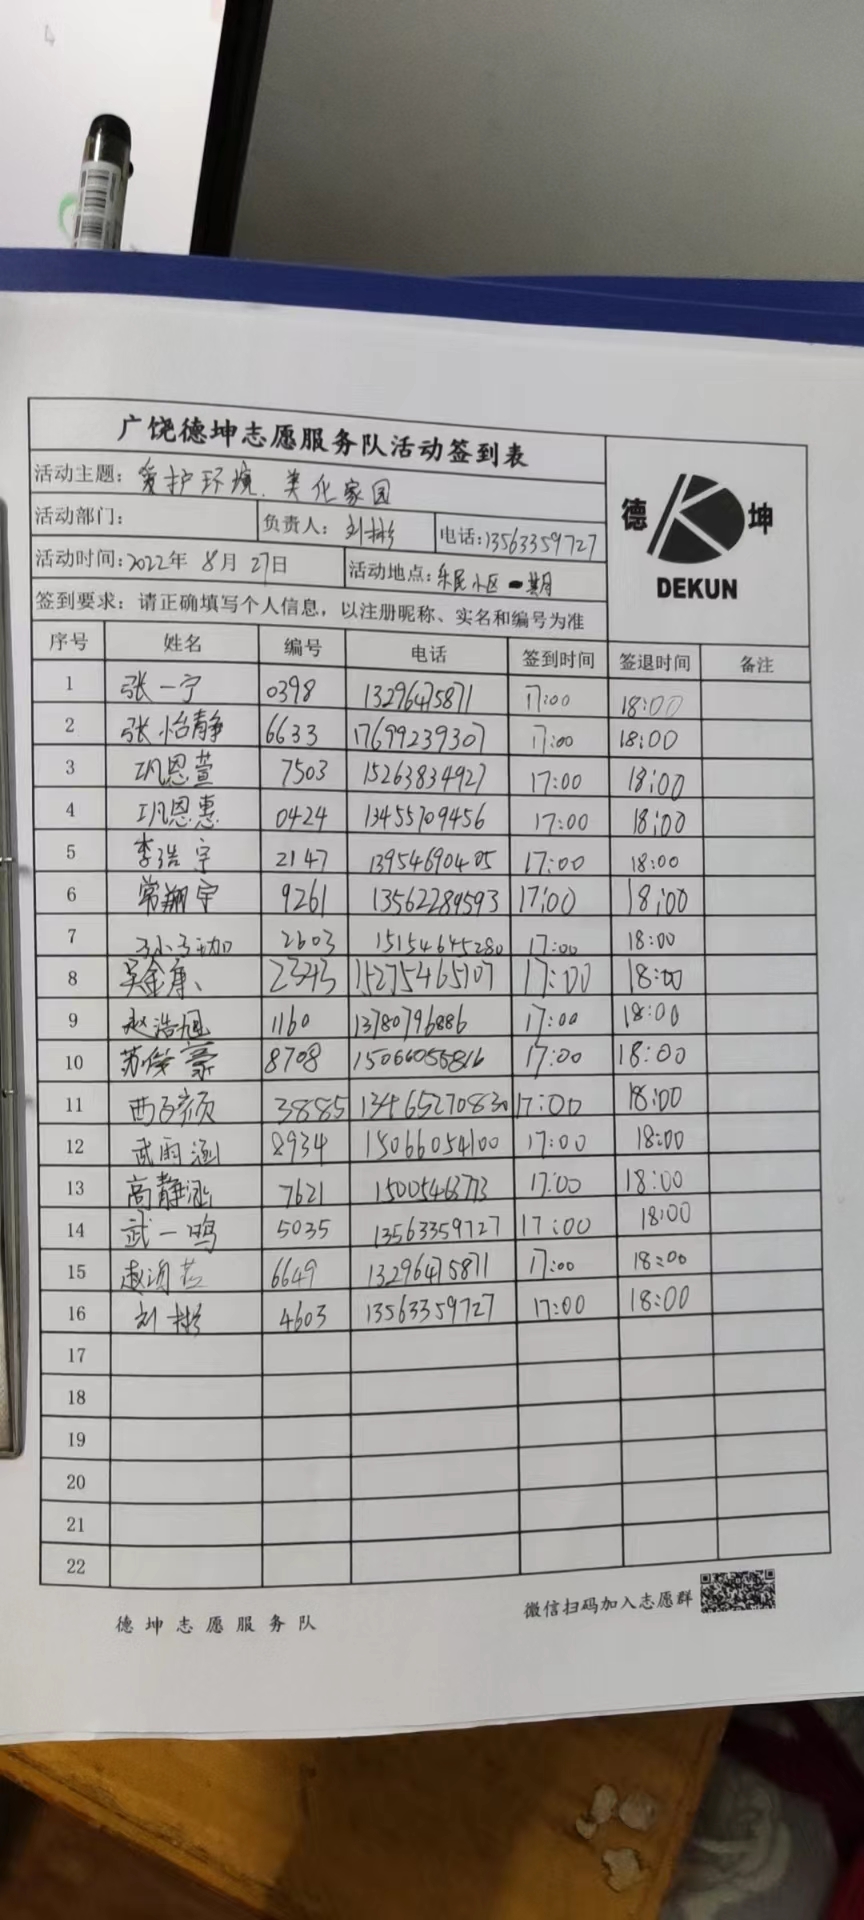 广饶德坤志愿服务队活动签到表
活动主题：爱护环境、美化家园
活动部门： 负责人：刘彬 电话：13563359727
德 坤
DEKUN
活动时间：2022年 8月 27日 活动地点：乐民小区一期
签到要求：请正确填写个人信息，以注册昵称、实名和编号为准
序号 姓名 编号 电话 签到时间 签退时间 备注
1 张一宁 0398 13296475871 17:00 18:00
2 张怡静 6633 17699239307 17:00 18:00
3 巩恩萱 7503 15263834927 17:00 18:00
4 巩恩惠 0424 13455709456 17:00 18:00
5 李浩宇 2147 13954690405 17:00 18:00
6 常翔宇 9261 13562289593 17:00 18:00
7 2603 15154645280 17:00 18:00
8 吴金康 2343 15275465107 17:00 18:00
9 赵浩旭 1160 13780796886 17:00 18:00
10 苏俊豪 8708 15066055816 17:00 18:00
11 3885 13465270830 17:00 18:00
12 武雨涵 8934 15066054100 17:00 18:00
13 高静涵 7621 15005463773 17:00 18:00
14 武一鸣 5035 13563359727 17:00 18:00
15 6649 13296475871 17:00 18:00
16 刘彬 4603 13563359727 17:00 18:00
17
18
19
20
21
22
德坤志愿服务队 微信扫码加入志愿群